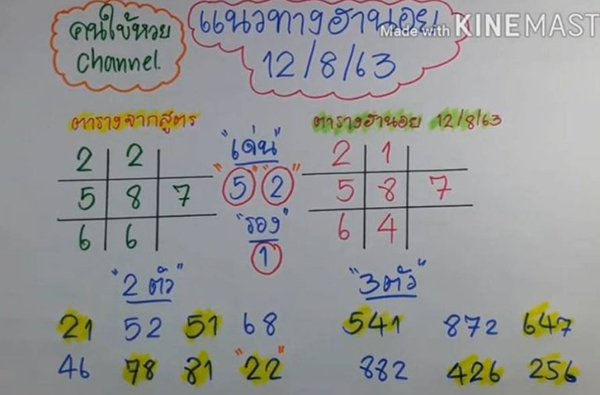 คนใบ้หวย
Channel.
แนวทางฮานอย
12/8/63
Made with KINEMAST
ตารางจากสูตร
2 2
5 8 7
6 6
"เด่น"
"5" "2"
"รอง"
1
ตารางฮานอย 12/8/63
2 1
5 8 7
6 4
"2 ตัว"
21 52 51 68
46 78 81 "22"
"3 ตัว"
541 872 647
882 426 256